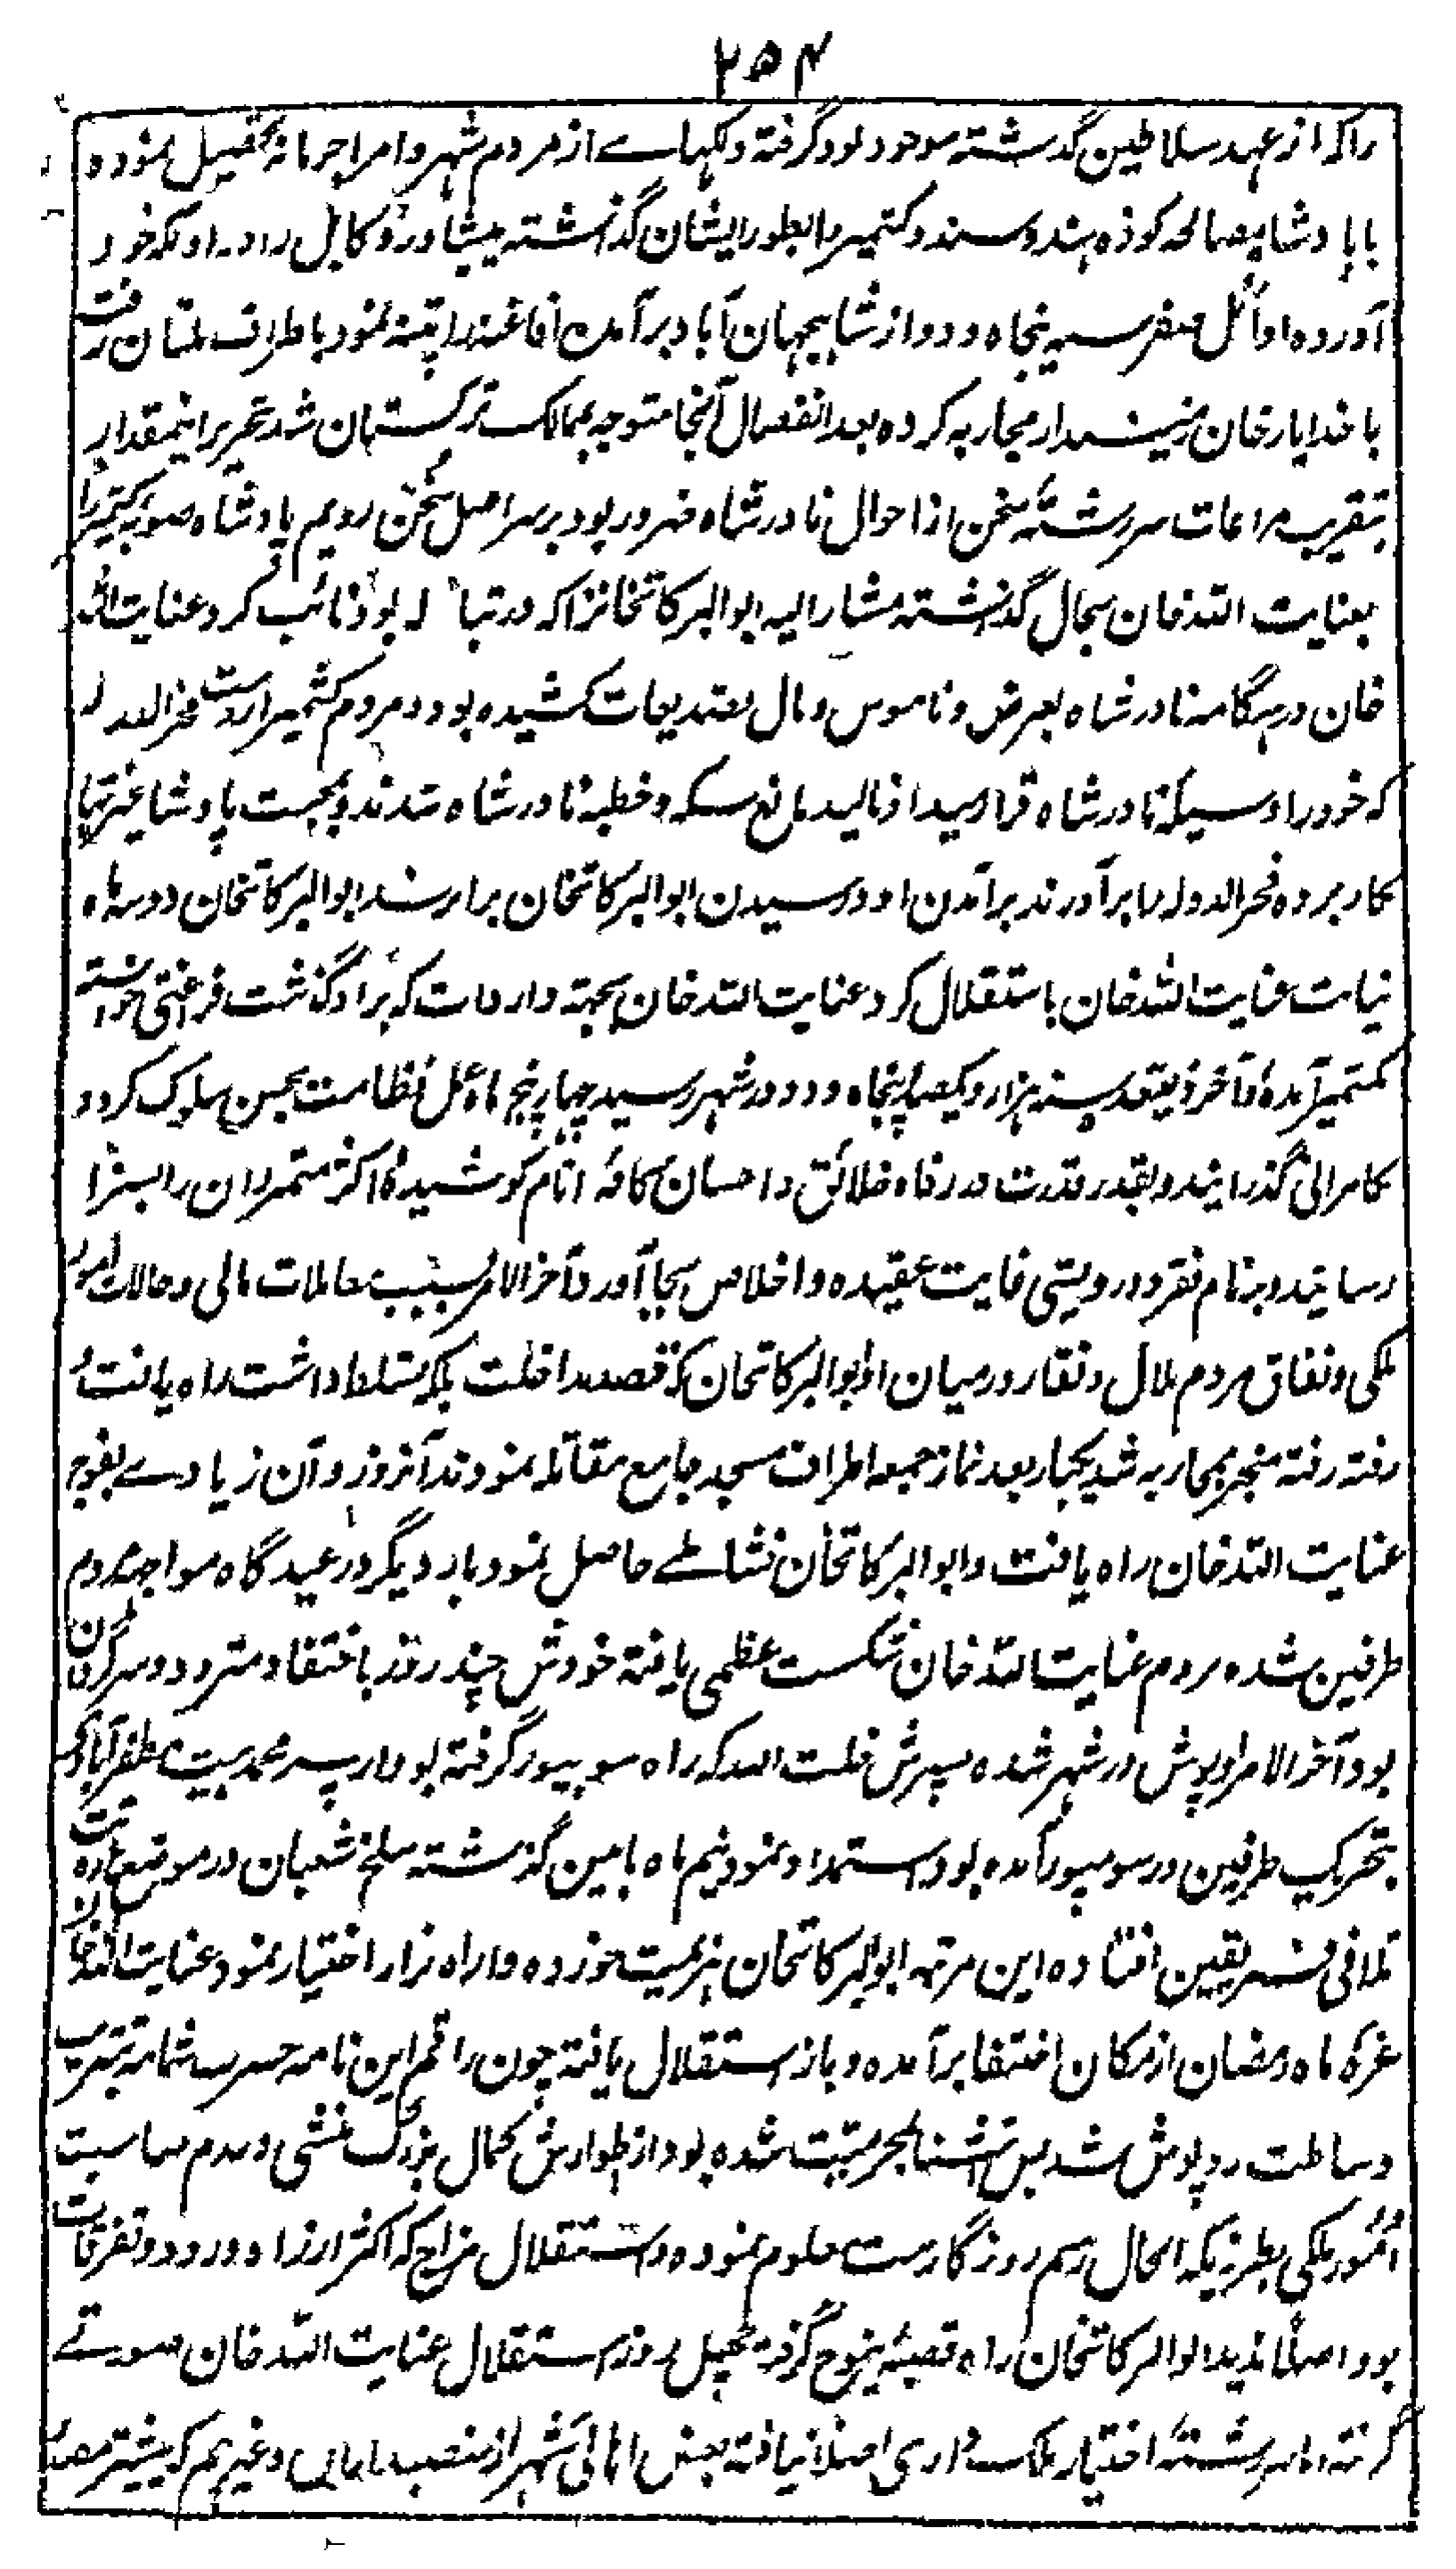 ۲۵۴
را که از عهد سلاطین گذشته موجود بود گرفته و لکهاے از مردم شهر و امرا جرمانه تحصیل نموده و
با پادشاه مصالحه کرده هند و سند و کشمیر را بطور ایشان گذاشته پیشاور و کابل را در او لکه خود
آورده اوائل صفر سنه پنجاه و دو از شاهجهان آباد برآمدن افاغنه را تنبیه نمود باطراف ملتان رفت
با خدایار خان زمیندار محاربه کرده بعد انفصال آنجا متوجه ممالک ترکستان شد تحریر اینمقدار
بتقریب مراعات سررشته سخن از احوال نادر شاه ضرور بود بر سر اصل سخن رویم پادشاه صوبه کشمیر را
بعنایت الله خان بحال گذشته مشار الیه ابوالبرکاتخانرا که در بود نائب کرد عنایت الله
خان در هنگامه نادر شاه بعرض و ناموس و مال تصدیعات کشیده بود و مردم کشمیر از دست فخرالدوله
که خود را و سیکه نادر شاه قرار میداد نالیده مانع سکه و خطبه نادر شاه شدند و بجهت پادشاه
کار برده فخرالدوله را برآوردند برآمدن او و رسیدن ابوالبرکاتخان برابر شد ابوالبرکاتخان دو سه ماه
نیابت عنایت الله خان باستقلال کرد عنایت الله خان بجهته واردات که برو گذشت فرغتی خواسته
کشمیر آمده و آخر ذیقعد سنه هزار و یکصد پنجاه و دو در شهر رسید چهار پنج ماه عمل نظامت بحسن سلوک کرد و
کامرانی گذرانید و بقدر قدرت در رفاه خلائق و احسان کافه انام کوشید و اکثر متمردان را بسزا
رسانید و بنام فقر و درویشی غایت عقیده و اخلاص بجا آورد و آخر الامر بسبب معاملات مالی و حالات امور
ملکی و نفاق مردم ملال و نقار در میان او و ابوالبرکاتخان که قصد مداخلت بلکه تسلط داشت راه یافت و
رفته رفته منجر بمحاربه شد یکبار بعد نماز جمعه اطراف مسجد جامع مقاتله نمودند آنروز و آن زیادے بفوج
عنایت الله خان راه یافت و ابوالبرکاتخان نشاطے حاصل نمود بار دیگر در عیدگاه مواجهه مردم
طرفین شده مردم عنایت الله خان شکست عظمی یافته خودش چند روز باختفا و متردد و سرگردان
بود آخر الامر روپوش در شهر شده پسرش خلت الله که راه سوپور گرفته بود از پسر محمد مظفرآبادی که
بتحریک طرفین در سوپور آمده بود استمداد نمود نیم ماه بامین گذشته سلخ شعبان در موضع
تلافی فریقین افتاده این مرتبه ابوالبرکاتخان هزیمت خورده و راه فرار اختیار نمود عنایت الله خان
غره ماه رمضان از مکان اختفا برآمده و باز استقلال یافته چون راقم این نامه بتقریب
وساطت روپوش شد شده بود از اطوارش کمال بزرگ منشی و عدم مناسبت
امور ملکی بطرزیکه الحال رسم روزگارست معلوم نموده و استقلال مزاج که اکثر از زاد و ورود و تفرقات
بود اصلا ندید ابوالبرکاتخان راه قصبه گرفت چهل روز استقلال عنایت الله خان صورتے
گرفته اما سررشته اختیار ملک داری اصلا نیافته بعض اهالی شهر از منصب و غیرهم که بیشتر مصدر